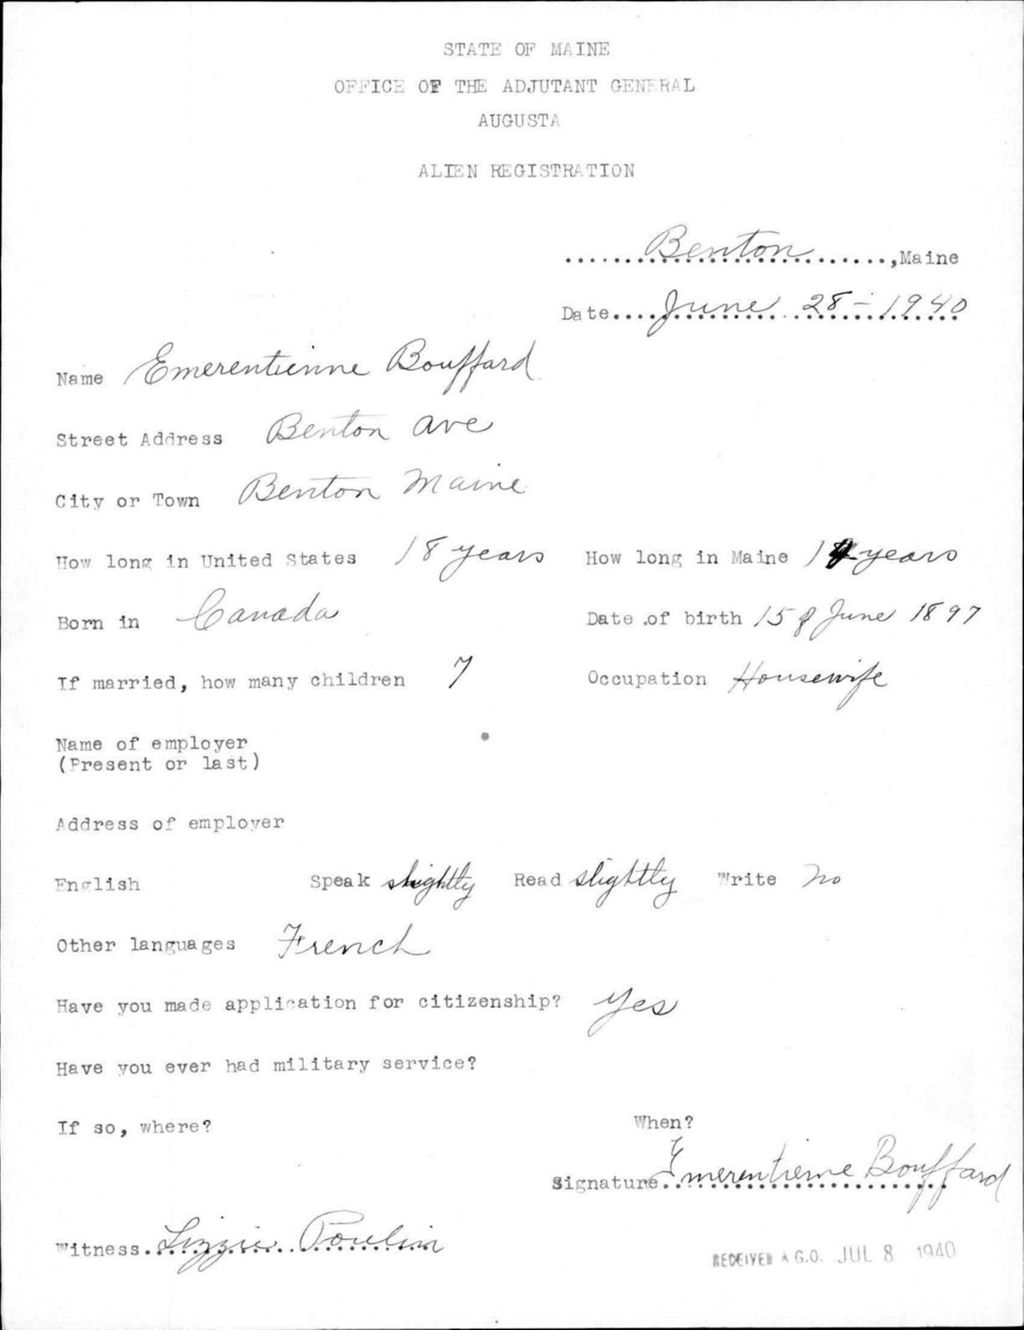 STATE OF MAINE
OFFICE OF THE ADJUTANT GENERAL
AUGUSTA
ALIEN REGISTRATION
Benton, Maine
Date June 28 - 1940
Name Emerentienne Bouffard
Street Address Benton Ave
City or Town Benton Maine
How long in United States 18 years How long in Maine years
Born in Canada Date of birth 15 of June 1897
If married, how many children 7 Occupation Housewife
Name of employer
(Present or last)
Address of employer
English Speak slightly Read slightly Write no
Other languages French
Have you made application for citizenship? Yes
Have you ever had military service?
If so, where? When?
Signature Emerentienne Bouffard
Witness Lizzie Poulin
RECEIVED A.G.O. JUL 8 1940